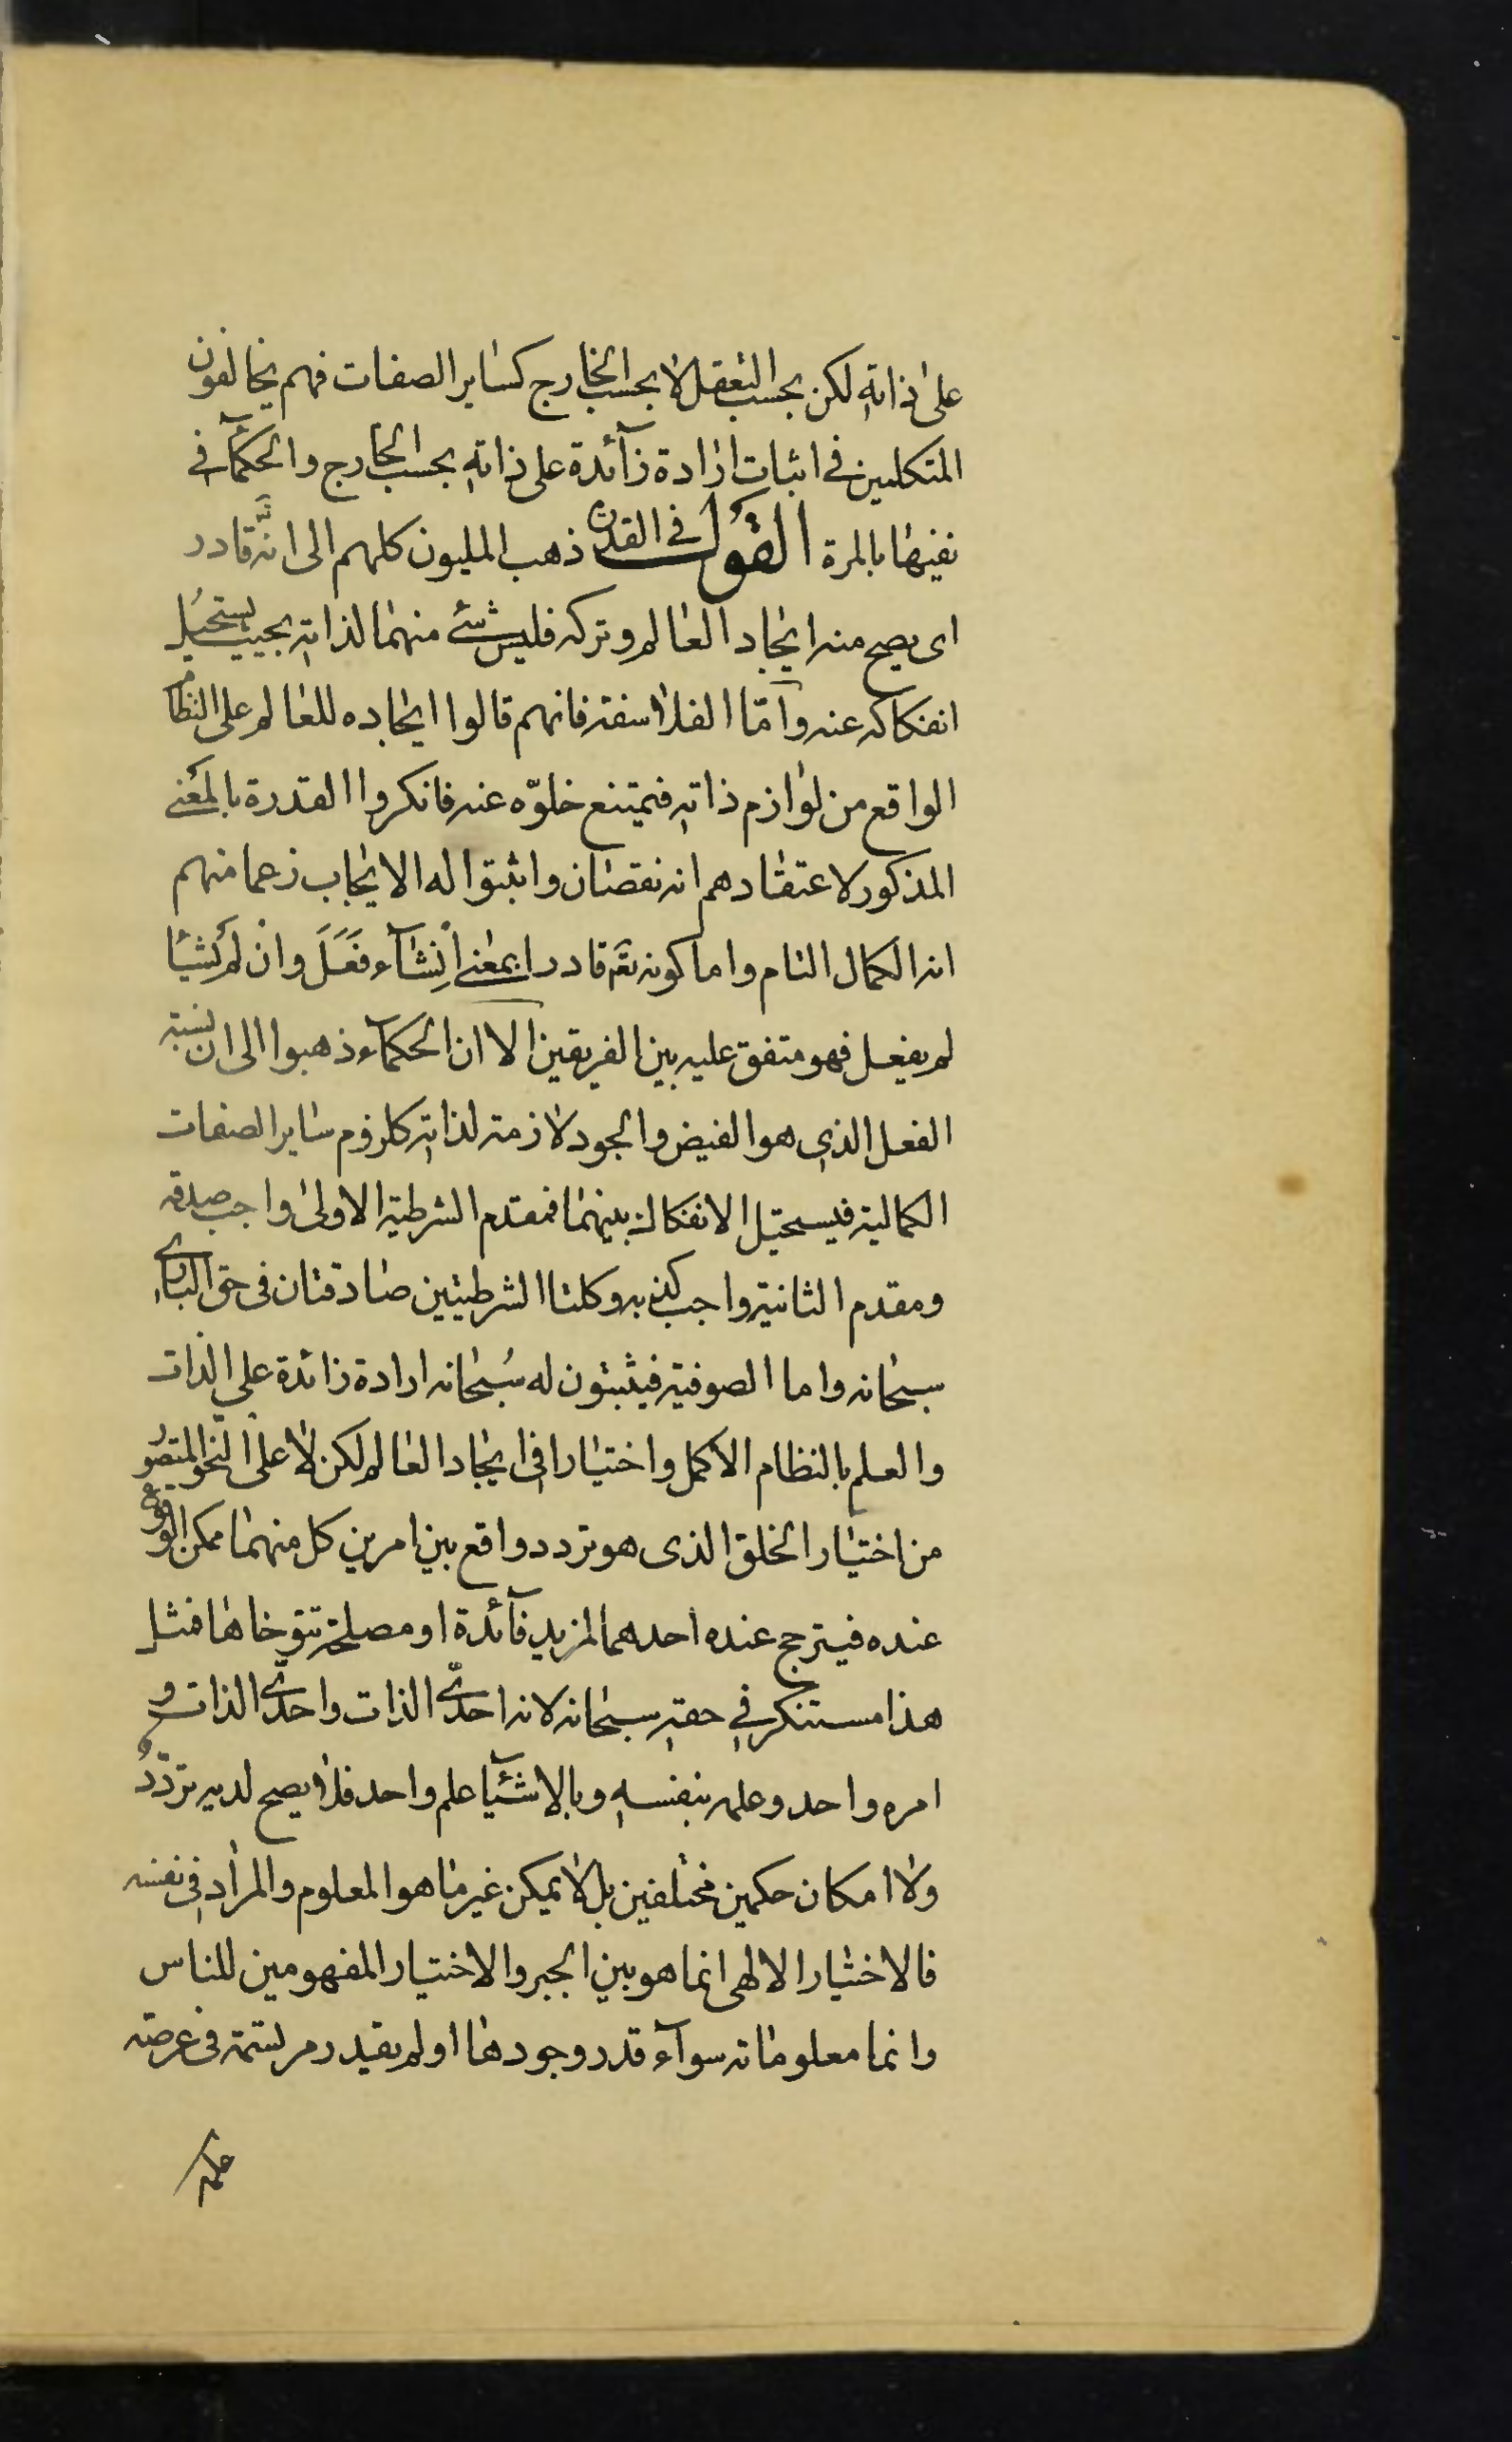 على ذاته لكن بحسب التعقل لا بحسب الخارج كساير الصفات فهم يخالفون
المتكلمين في اثبات ارادة زآئدة على ذاته بحسب الخارج والحكمآء في
نفيها بالمرة القول في القدرة ذهب المليون كلهم الى انه تع قادر
اى يصح منه ايجاد العالم وتركه فليس شئ منهما لذاته بحيث يستحيل
انفكاكه عنه وامّا الفلاسفة فانهم قالوا ايجاده للعالم على النظام
الواقع من لوازم ذاته فيمتنع خلوّه عنه فانكروا القدرة بالمعنى
المذكور لاعتقادهم انه نقصان واثبتوا له الايجاب زعما منهم
انه الكمال التام واما كونه تع قادرا بمعنى ان شآء فَعَلَ وان لم يشأ
لم يفعل فهو متفق عليه بين الفريقين الا ان الحكمآء ذهبوا الى ان نسبة
الفعل الذى هو الفيض والجود لازمة لذاته كلزوم ساير الصفات
الكمالية فيستحيل الانفكاك بينهما فمقدم الشرطية الاولى واجب صدقه
ومقدم الثانية واجب كذبه وكلتا الشرطيتين صادقتان في حق البارى
سبحانه واما الصوفية فيثبتون له سُبحانه ارادة زائدة على الذات
والعلم بالنظام الاكمل واختيارا في ايجاد العالم لكن لا على النحو المتصور
من اختيار الخلق الذى هو تردد واقع بين امرين كل منهما ممكن الوقوع
عنده فيترجح عنده احدهما لمزيد فآئدة او مصلحة تتوخاها فمثل
هذا مستنكر في حقه سبحانه لانه احدّى الذات واحدّى الذات و
امره واحد وعلمه بنفسه وبالاشيآ علم واحد فلا يصح لديه تردّدٌ
ولا امكان حكمين مختلفين بل لا يمكن غير ما هو المعلوم والمراد في نفسه
فالاختيار الالهى انما هو بين الجبر والاختيار المفهومين للناس
وانما معلوماته سوآء قدر وجودها او لم يقدر مرتسمة في عرصة
علمه